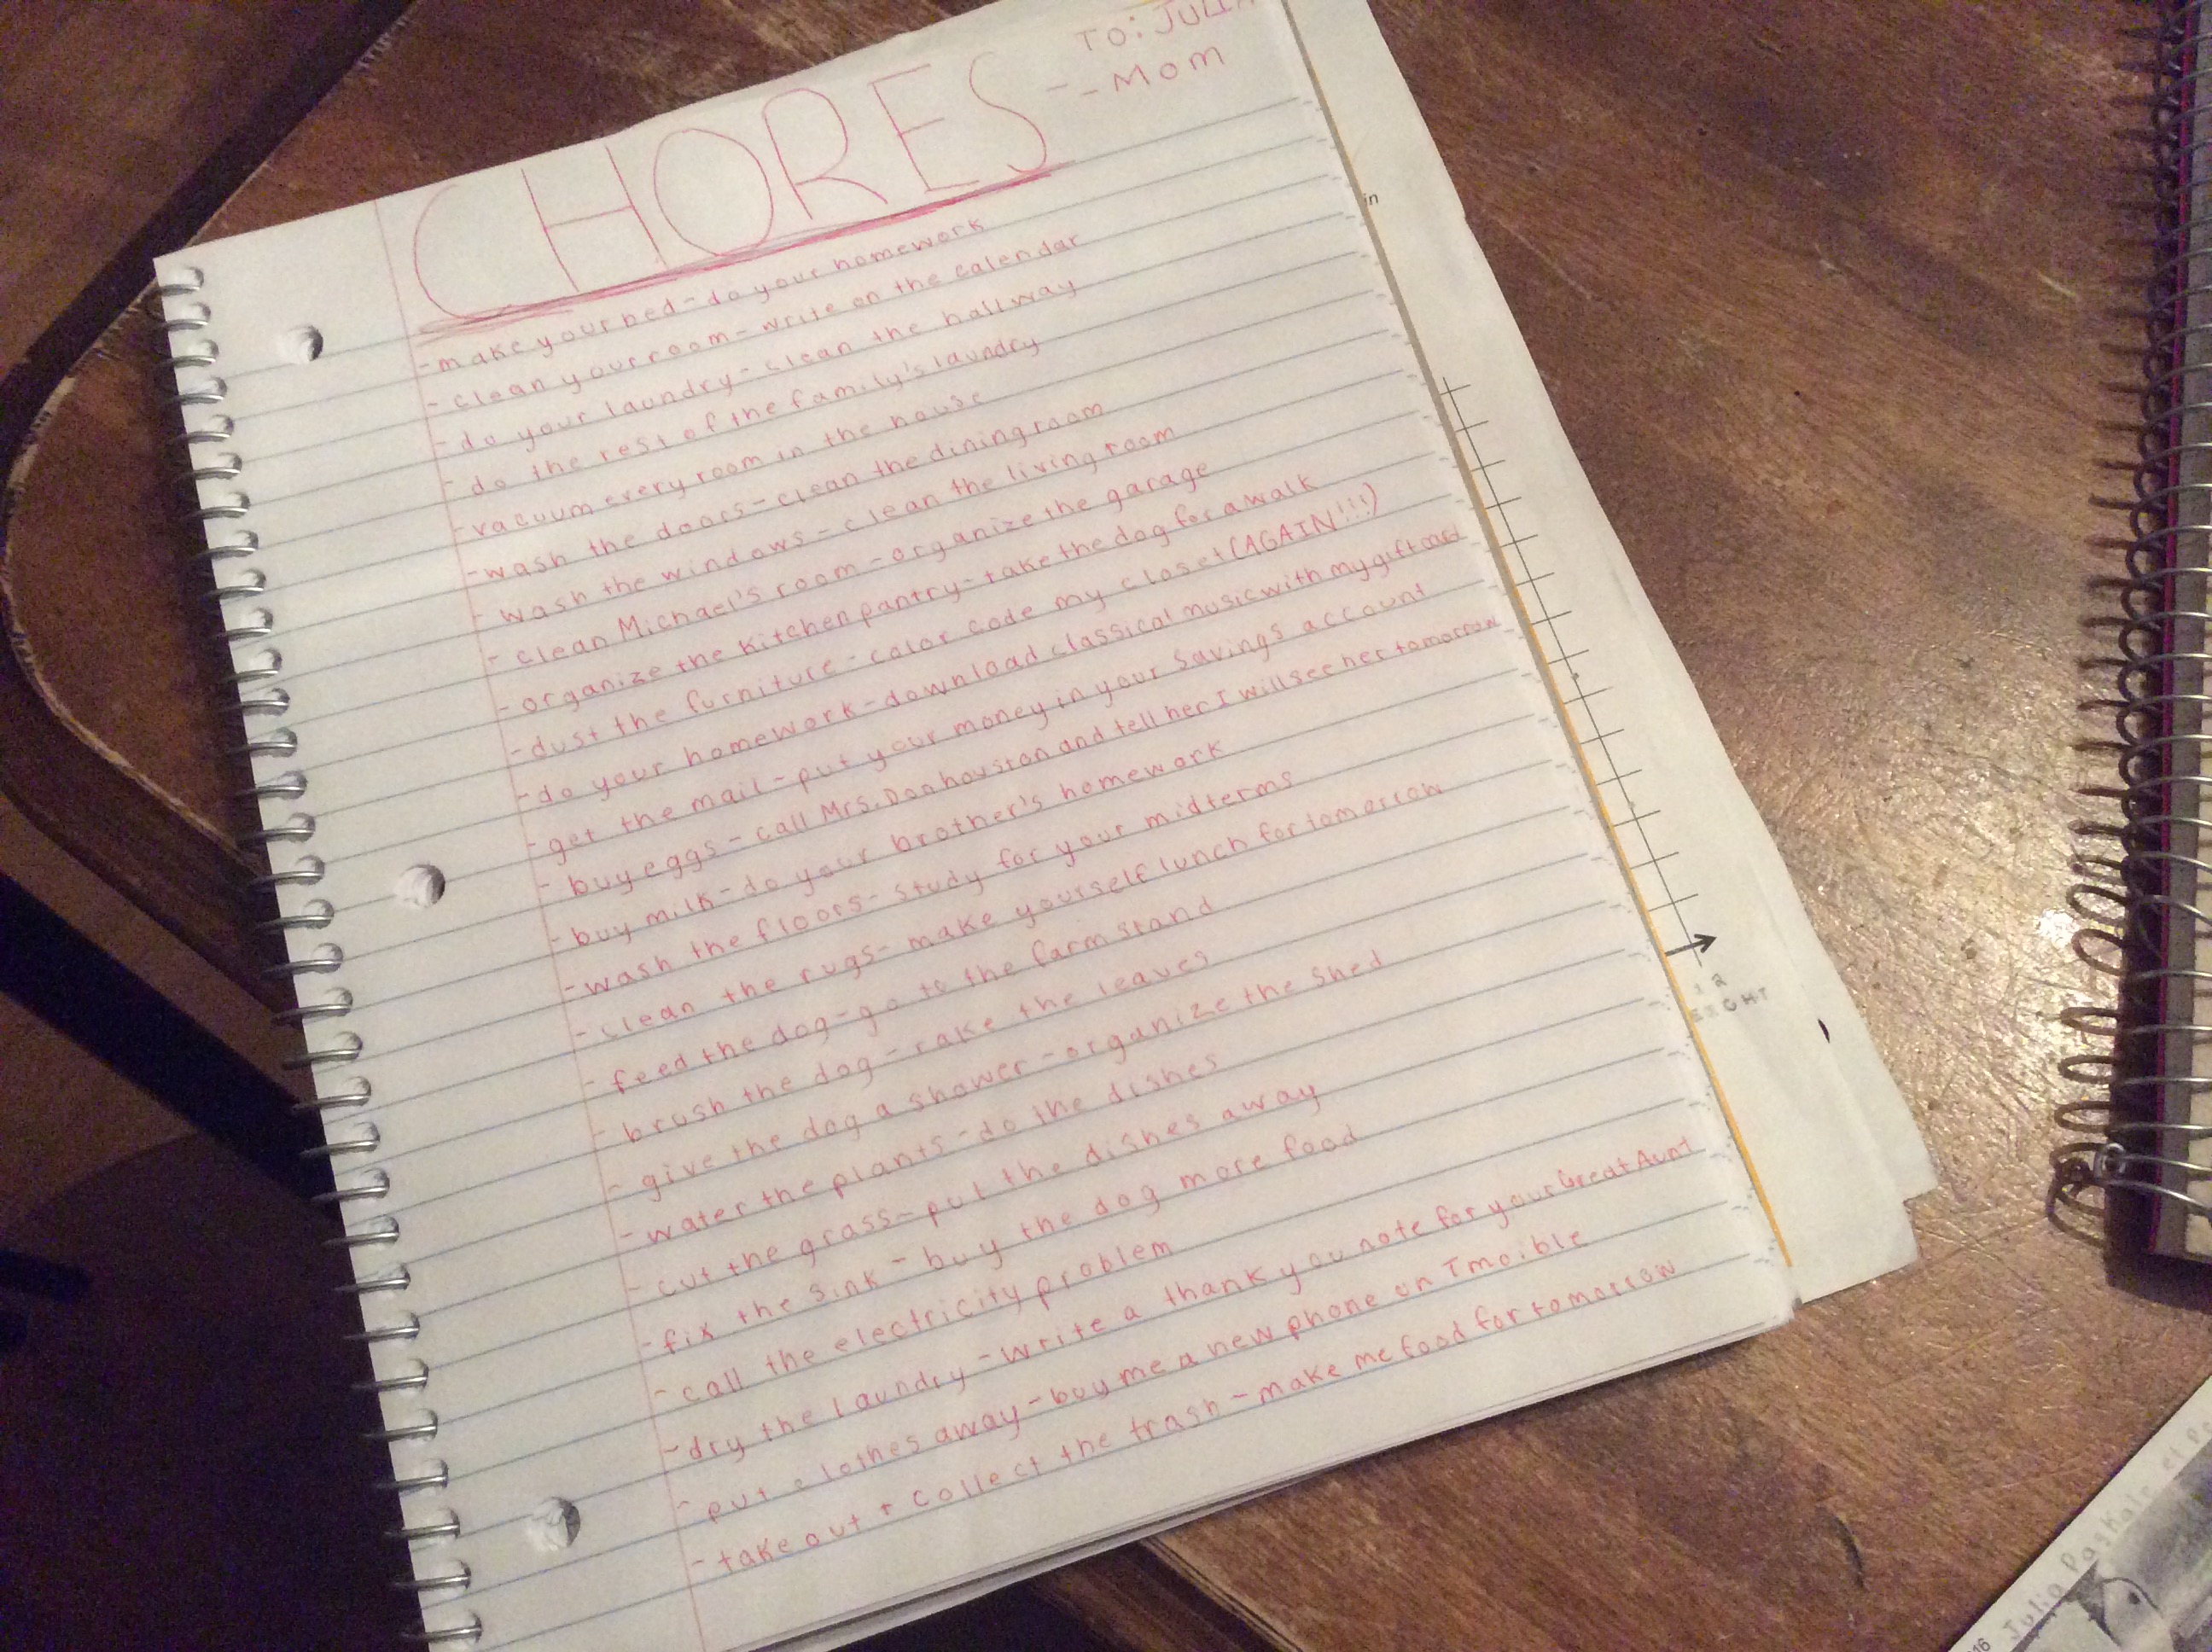 TO: JULIA
CHORES - - Mom
- make your bed - do your homework
- clean your room - write on the calendar
- do your laundry - clean the hallway
- do the rest of the family's laundry
- vacuum every room in the house
- wash the doors - clean the dining room
- wash the windows - clean the living room
- clean Michael's room - organize the garage
- organize the kitchen pantry - take the dog for a walk
- dust the furniture - color code my closet (AGAIN!!!)
- do your homework - download classical music with my gift card
- get the mail - put your money in your savings account
- buy eggs - call Mrs. Donhouston and tell her I will see her tomorrow
- buy milk - do your brother's homework
- wash the floors - study for your midterms
- clean the rugs - make yourself lunch for tomorrow
- feed the dog - go to the farm stand
- brush the dog - rake the leaves
- give the dog a shower - organize the shed
- water the plants - do the dishes
- cut the grass - put the dishes away
- fix the sink - buy the dog more food
- call the electricity problem
- dry the laundry - write a thank you note for your Great Aunt
- put clothes away - buy me a new phone on Tmoible
- take out + collect the trash - make me food for tomorrow
in
Julia Paskale et
16